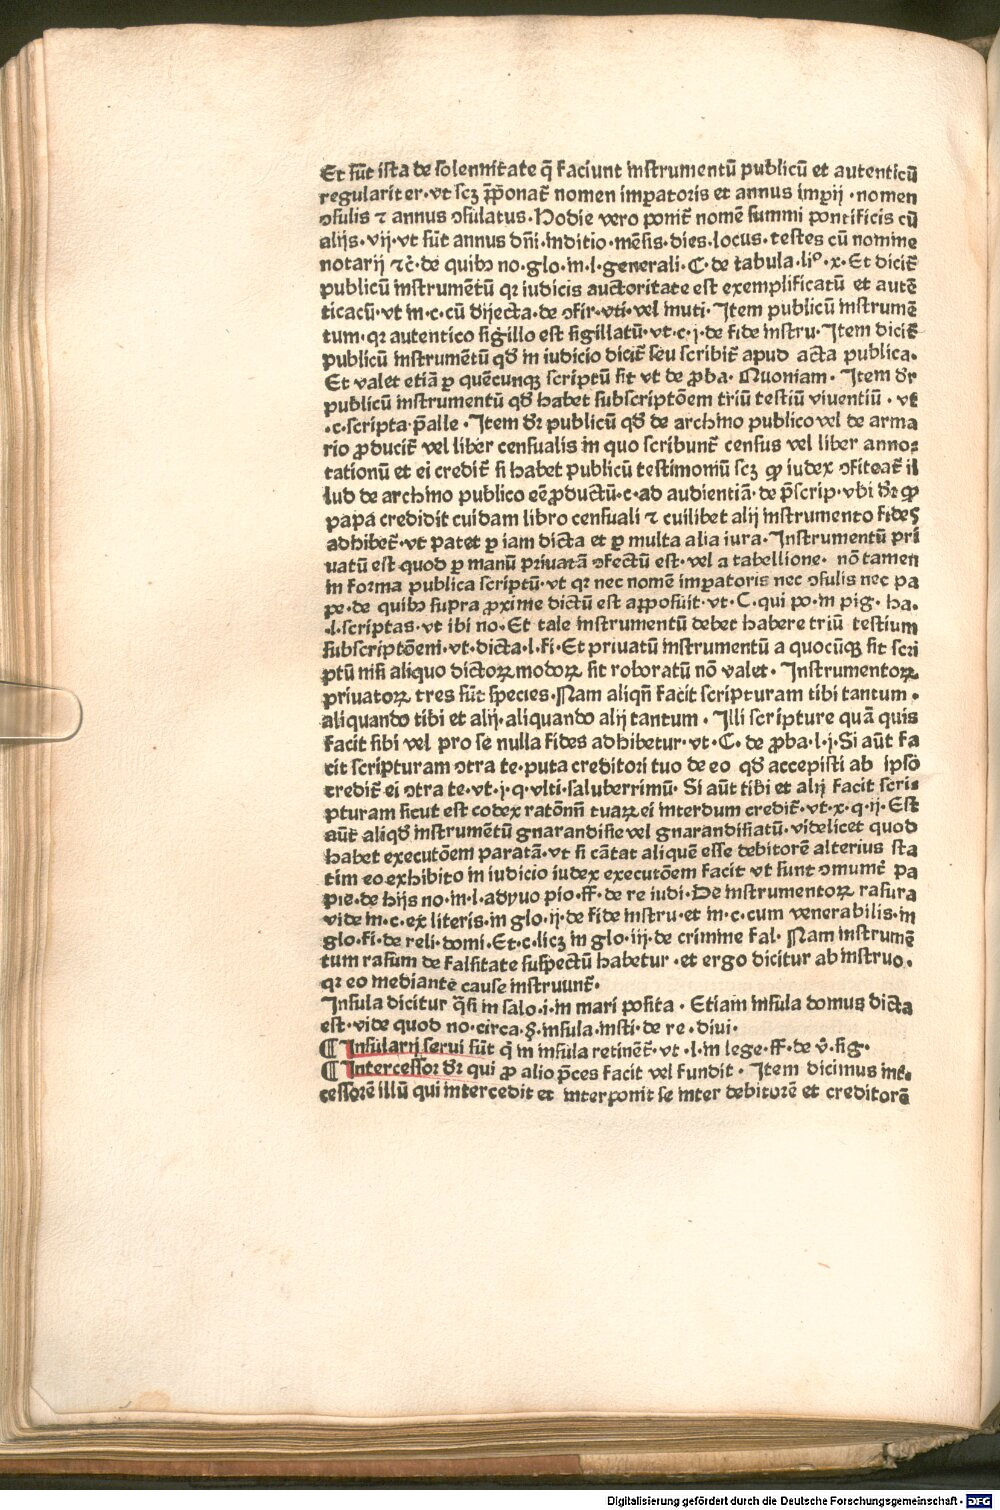 Et sūt ista de solennitate q̄ faciunt instrumentū publicū et autenticū
regulariter·vt scꝫ p̄ponat̄ nomen imꝑatoris et annus imꝑij·nomen
ↄsulis ⁊ annus ↄsulatus·Hodie vero ponit̄ nomē summi pontificis cū
alijs·vij·vt sūt annus dn̄i·inditio·mēsis·dies·locus·testes cū nomine
notarij ⁊c̄·de quibꝫ no·glo·in·l·generali·C·de tabula·liº·x·Et dicit̄
publicū instrumētū qꝛ iudicis auctoritate est exemplificatū et autē
ticacū·vt in·c·cū dijecta·de ↄfir·vti·vel muti·Item publicū instrumē
tum·qꝛ autentico sigillo est sigillatū·vt·c·j·de fide instru·Item dicit̄
publicū instrumētū qd̄ in iudicio dicit̄ seu scribit̄ apud acta publica·
Et valet etiā ꝑ quēcunqꝫ scriptū sit vt de ꝓba·Quoniam·Item dr̄
publicū instrumentū qd̄ habet subscriptōem triū testiū viventiū·vt
·c·scripta·p̄alle·Item dr̄ publicū qd̄ de archino publico vel de arma
rio ꝓducit̄ vel liber censualis in quo scribunt̄ census vel liber anno⸗
tationū et ei credit̄ si habet publicū testimoniū scꝫ ꝙ iudex ↄfiteat̄ il
lud de archino publico eē ꝓductū·c·ad audientiā·de p̄scrip·vbi dr̄ ꝙ
papa credidit cuidam libro censuali ⁊ cuilibet alij instrumento fides
adhibet̄·vt patet ꝑ iam dicta et ꝑ multa alia iura·Instrumentū pri
uatū est quod ꝑ manū privatā ↄfectū est·vel a tabellione·nō tamen
in forma publica scriptū·vt qꝛ nec nomē imꝑatoris nec ↄsulis nec pa
pe·de quibꝫ supra ꝓxime dictū est apposuit·vt·C·qui po·in pig·ha·
·l·scriptas·vt ibi no·Et tale instrumentū debet habere triū testium
subscriptōem·vt·dicta·l·fi·Et privatū instrumentū a quocūqꝫ sit scri
ptū nisi aliquo dictoꝝ modoꝝ sit roboratū nō valet·Instrumentoꝝ
privatoꝝ tres sūt species·Nam aliqn̄ facit scripturam tibi tantum·
aliquando tibi et alij·aliquando alij tantum·Illi scripture quā quis
facit sibi vel pro se nulla fides adhibetur·vt·C·de ꝓba·l·j·Si aūt fa
cit scripturam ↄtra te·puta creditori tuo de eo qd̄ accepisti ab ipso
credit̄ ei ↄtra te·vt·j·q·vlti·saluberrimū·Si aūt tibi et alij facit scri⸗
pturam sicut est codex ratōnū tuaꝝ ei interdum credit̄·vt·x·q·ij·Est
aūt aliqd̄ instrumētū gnarandisie vel gnarandisiatū·videlicet quod
habet executōem paratā·vt si cātat aliquē esse debitorē alterius sta
tim eo exhibito in iudicio iudex executōem facit vt sunt ↄmunit̄ pa
pie·de hijs no·in·l·adyuo pio·ff·de re iudi·De instrumentoꝝ rasura
vide in·c·ex literis·in glo·ij·de fide instru·et in·c·cum venerabilis·in
glo·fi·de reli·domi·Et·c·licꝫ in glo·iij·de crimine fal·Nam instrumē
tum rasum de falsitate suspectū habetur·et ergo dicitur ab instruo·
qꝛ eo mediante cause instruunt̄·
Insula dicitur q̄si in salo·i·in mari posita·Etiam insula domus dicta
est·vide quod no·circa·§·insula·insti·de re·divi·
¶ Insularij servi sūt q̄ in insula retinēt̄·vt·l·in lege·ff·de v̄·sig·
¶ Intercessor dr̄ qui ꝓ alio p̄ces facit vel fundit·Item dicimus int̄·
cessorē illū qui intercedit et interponit se inter debitorē et creditorē
Digitalisierung gefördert durch die Deutsche Forschungsgemeinschaft - DFG